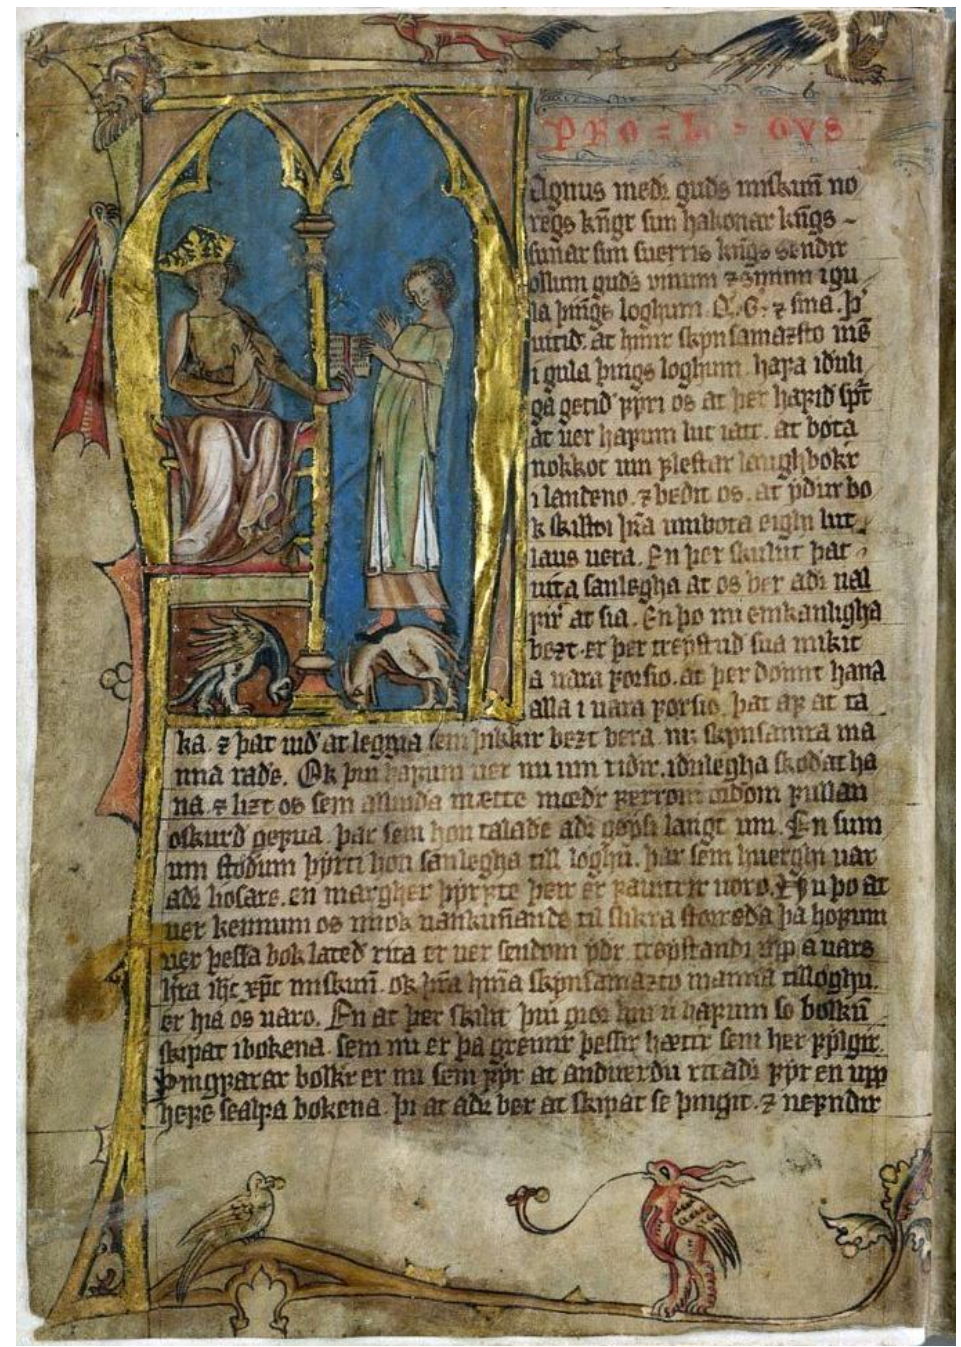 PRO = LO = GVS
Agnus medr guds miskuñ no
regs kñgr sun hakonar kñgs ~
sunar sun suerris kñgs sendir
ollum guds vinum ⁊ sinum i gu
la þings loghum. Q. G. ⁊ sina. þ
uitid. at hinir skynsamazsto mē
i gula þings loghum. hafa iduli
ga getid fyrir os at þer hafid spt
at uer hafum lut iatt. at bota
nokkot um flestar laughbokr
i landeno. ⁊ bedit os. at ydur bo
k skilldi þra umbota eighi lut
laus uera. En þer skulut þat
uita sanlegha at os ber adr uæl
firir at sia. En þo nu einkanligha
bezt. er þer treystud sua mikit
a uara forsio. at þer domit hana
alla i uara forsio. þat af at ta
ka. ⁊ þat uid at leggia sem þikkir bezt bera. m; skynsamra ma
nna rade. Ok þui hafum uer nu um tidir. idulegha skodat ha
na. ⁊ lizt os sem allmida mætte mædr færrom ordom fullan
oskurd gefua. þar sem hon talade adr gofsi langt um. En sum
um stodum þyrti hon sanlegha till loghũ. þar sem huerghi uar
adr hosare. en margher þyrfte þeir er fauittir uoro. Nu þo at
uer kennum os miok uankuñande til slikra storeda þa hofum
uer þessa bok lated rita er uer sendom ydr treystandi upp a uars
hra ihc xpc miskuñ. ok hra hina skynsamazto manna tilloghũ.
er hia os uaro. En at þer skilit þui gior huũ ũ hafum so bolkũ
skipat i bokena. sem nu er þa greinir þessir hættir sem her fylgir.
Þingfarar bolkr er nu sem fyr at anduerdu rit adr fyr en upp
hefe sealfa bokena. þi at adr ber at skipat se þingit. ⁊ nefndir